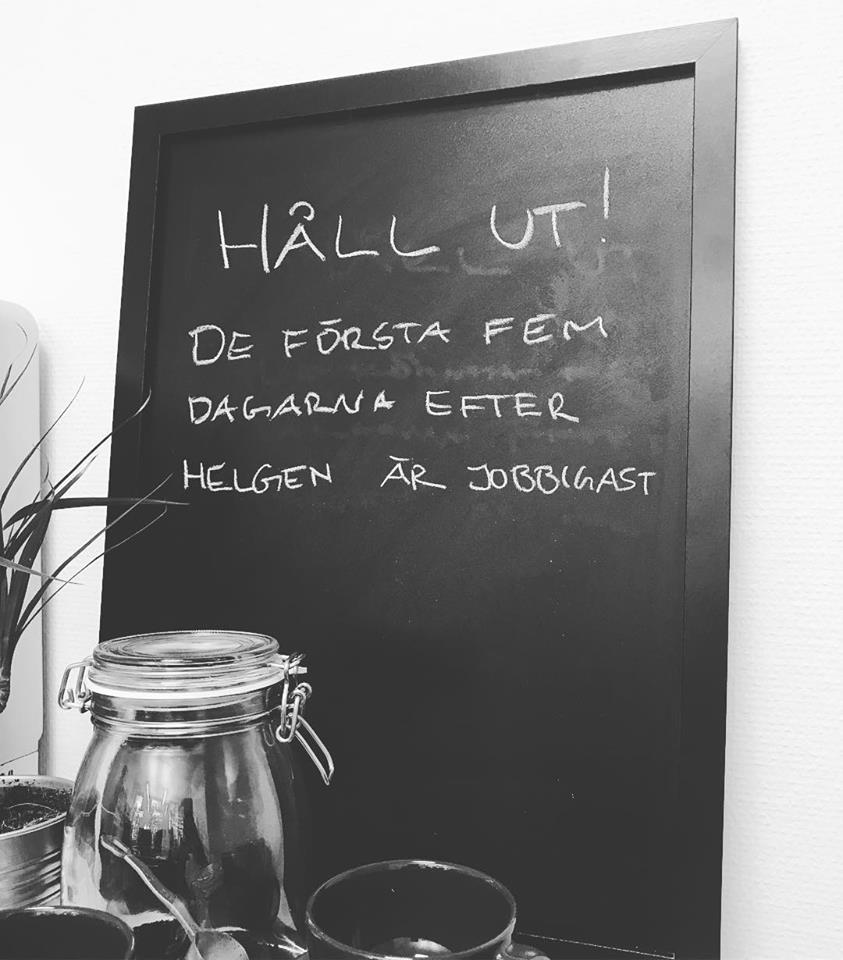 HÅLL UT!
DE FÖRSTA FEM
DAGARNA EFTER
HELGEN ÄR JOBBIGAST